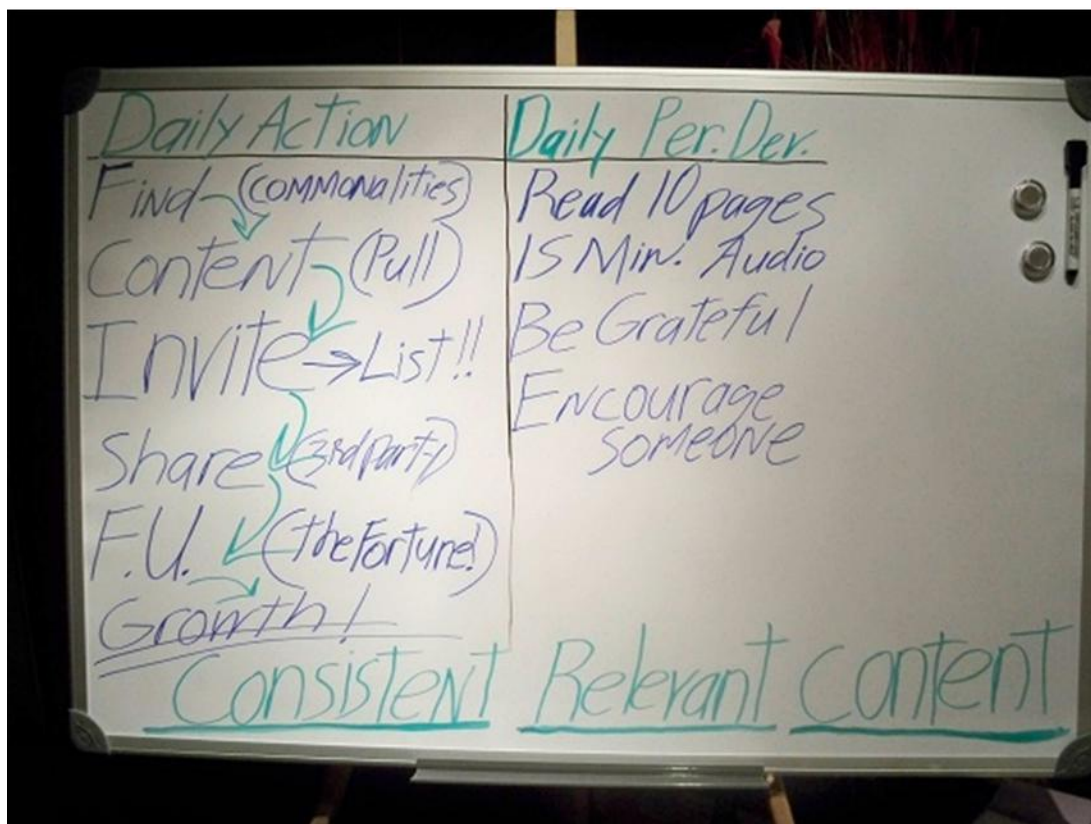 Daily Action
Find (commonalities)
Content (Pull)
Invite → List!!
Share (3rd Party)
F.U. (the Fortune!)
Growth!
Daily Per. Dev.
Read 10 pages
15 Min. Audio
Be Grateful
Encourage
someone
Consistent Relevant Content